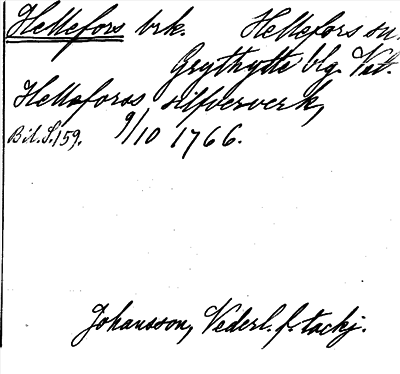 Hellefors brk. Hellefors sn.
Grythytte blg. Vstl.
Helleforss silfververk,
Bil. S. 159. 9/10 1766.
Johansson, Nederl. f. tackj.